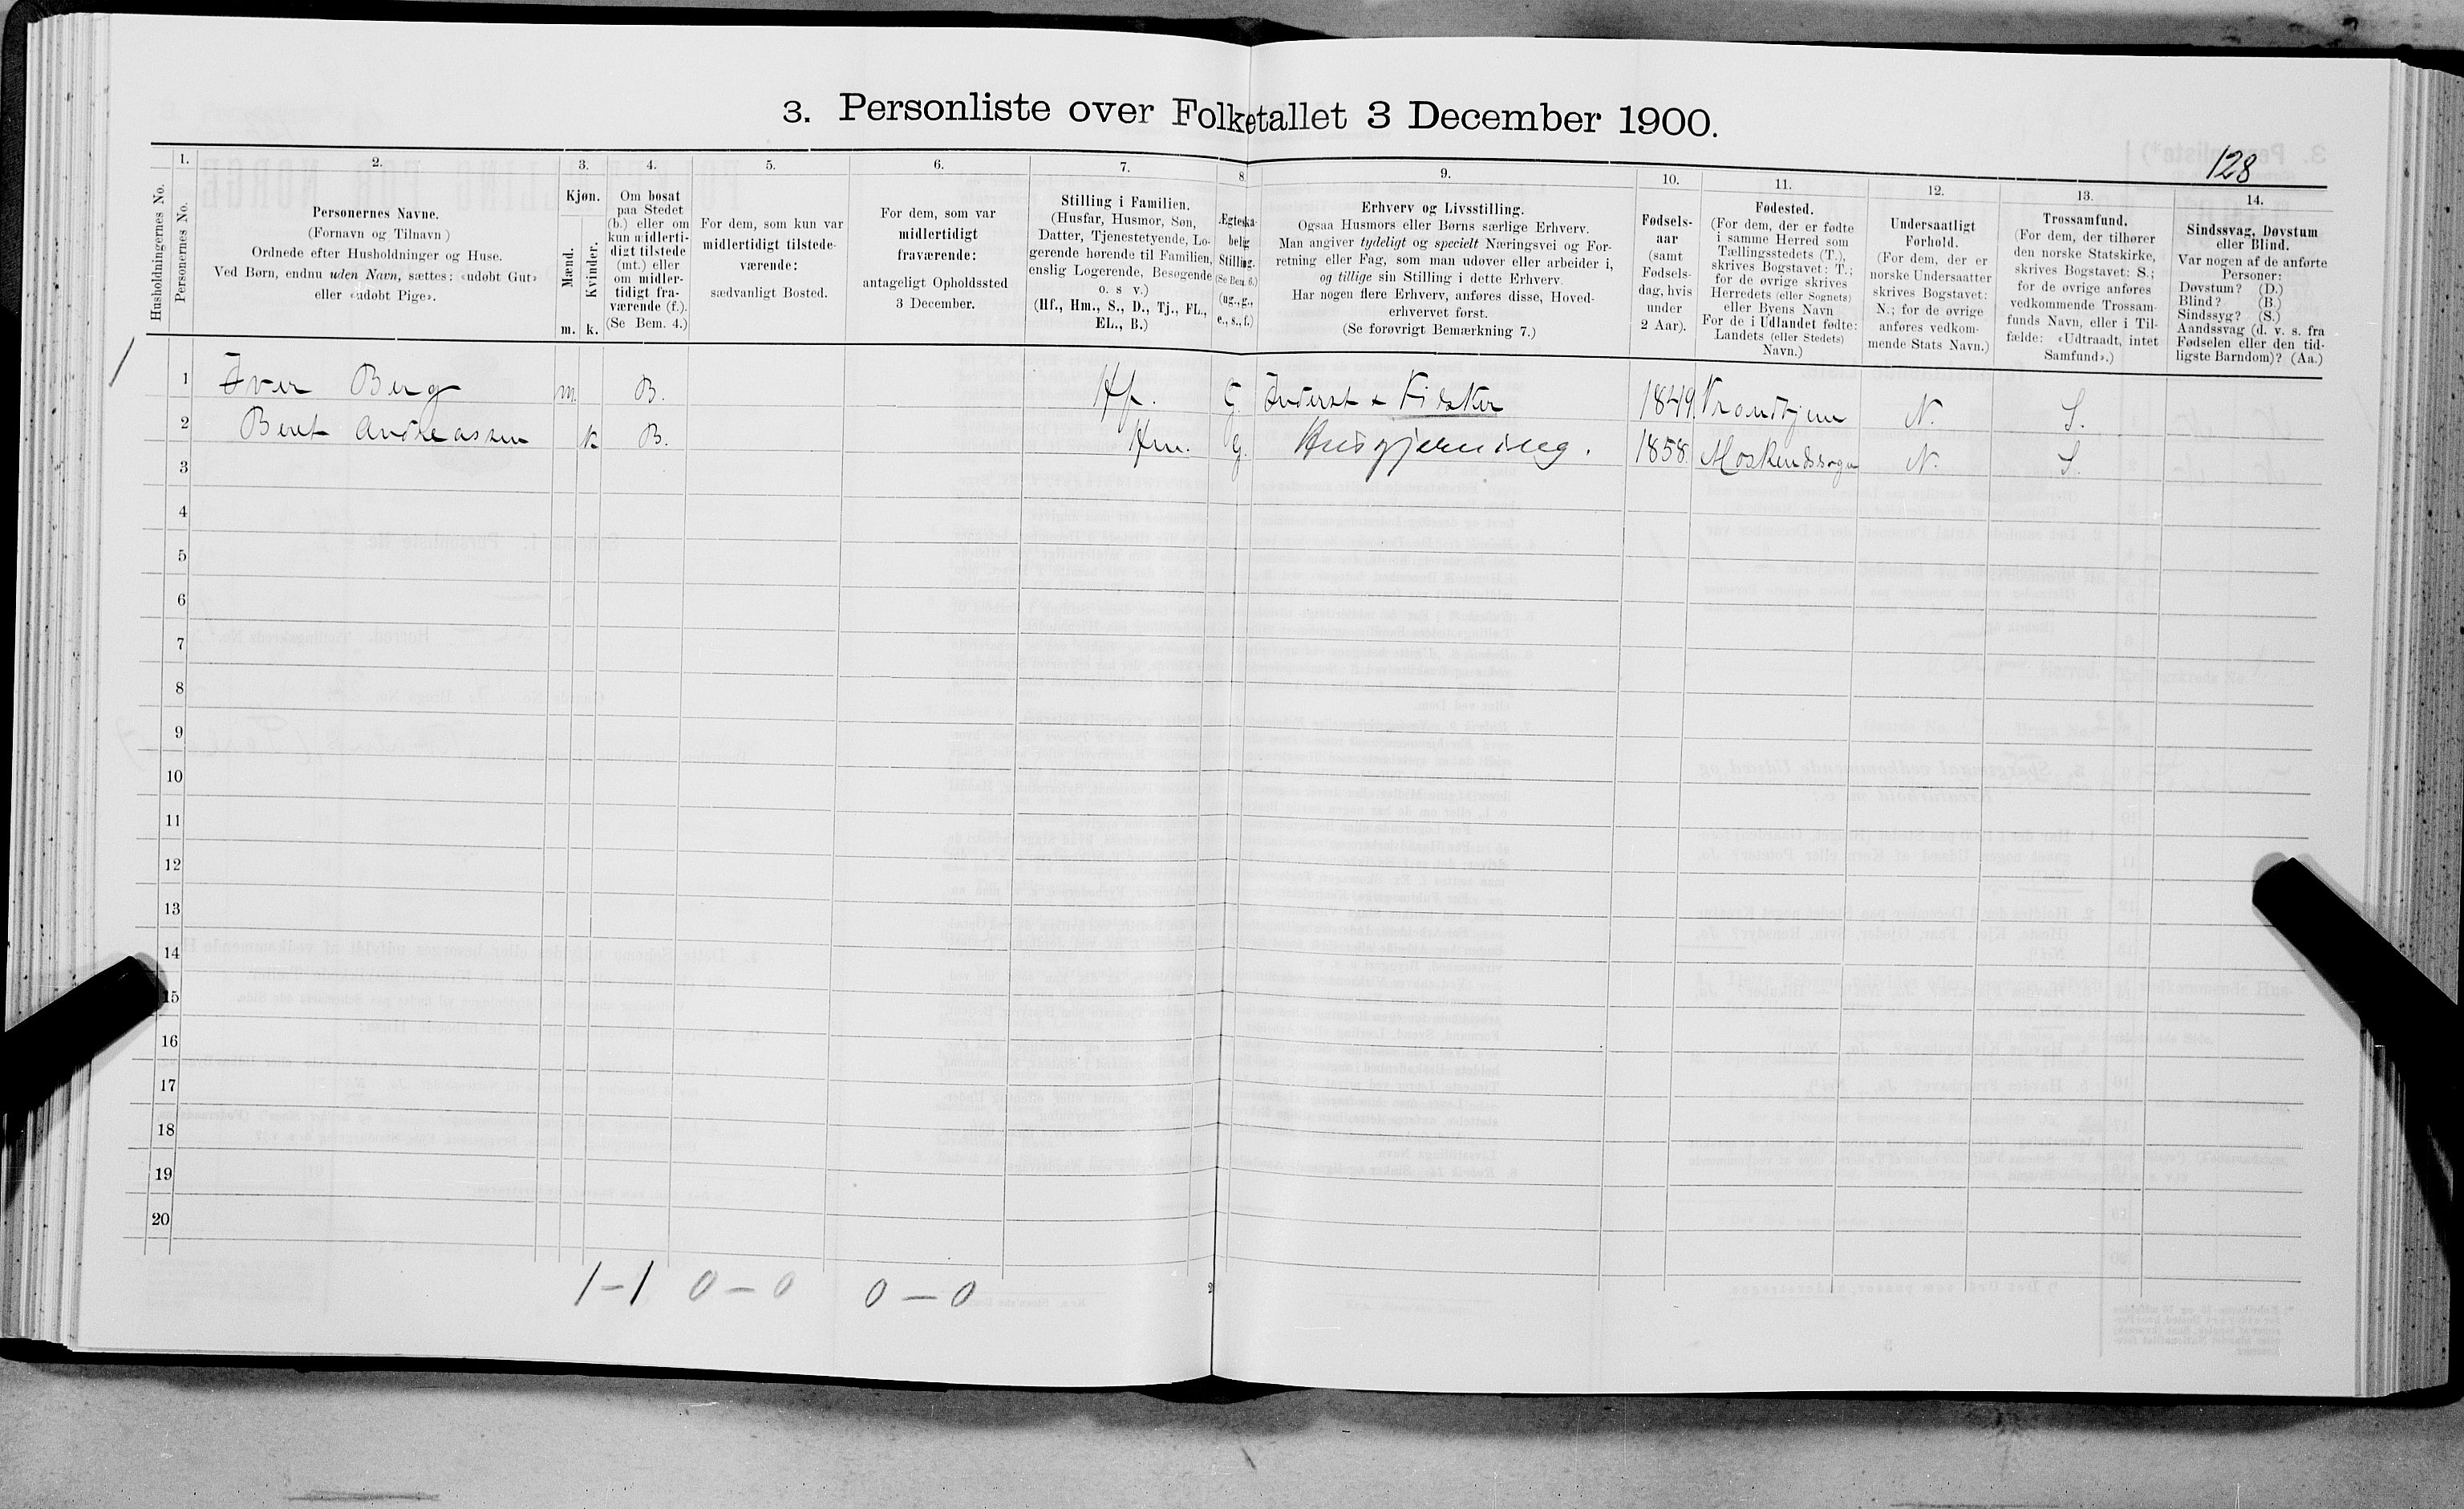 3. Personliste over Folketallet 3 December 1900.
128
Husholdningernes No.
1.
Personernes No.
2.
Personernes Navne.
(Fornavn og Tilnavn)
Ordnede efter Husholdninger og Huse.
Ved Børn, endnu uden Navn, sættes: «udøbt Gut»
eller «udøbt Pige».
3.
Kjøn.
Mænd.
Kvinder.
m. k.
4.
Om bosat
paa Stedet
(b.) eller om
kun midlerti-
digt tilstede
(mt.) eller
om midler-
tidigt fra-
værende (f.).
(Se Bem. 4.)
5.
For dem, som kun var
midlertidigt tilstede-
værende:
sædvanligt Bosted.
6.
For dem, som var
midlertidigt
fraværende:
antageligt Opholdssted
3 December.
7.
Stilling i Familien.
(Husfar, Husmor, Søn,
Datter, Tjenestetyende, Lo-
gerende hørende til Familien,
enslig Logerende, Besøgende
o. s v.)
(Hf., Hm., S., D., Tj., FL.,
EL., B.)
8.
Ægteska-
belig
Stilling.
(Se Bem. 6.)
(ug., g.,
e., s., f.)
9.
Erhverv og Livsstilling.
Ogsaa Husmors eller Børns særlige Erhverv.
Man angiver tydeligt og specielt Næringsvei og For-
retning eller Fag, som man udøver eller arbeider i,
og tillige sin Stilling i dette Erhverv.
Har nogen flere Erhverv, anføres disse, Hoved-
erhvervet først.
(Se forøvrigt Bemærkning 7.)
10.
Fødsels-
aar
(samt
Fødsels-
dag, hvis
under
2 Aar).
11.
Fødested.
(For dem, der er fødte
i samme Herred som
Tællingsstedets (T.),
skrives Bogstavet: T.;
for de øvrige skrives
Herredets (eller Sognets)
eller Byens Navn
For de i Udlandet fødte:
Landets (eller Stedets)
Navn.)
12.
Undersaatligt
Forhold.
(For dem, der er
norske Undersaatter
skrives Bogstavet:
N.; for de øvrige
anføres vedkom-
mende Stats Navn.)
13.
Trossamfund.
(For dem, der tilhører
den norske Statskirke,
skrives Bogstavet: S.;
for de øvrige anføres
vedkommende Trossam-
funds Navn, eller i Til-
fælde: «Udtraadt, intet
Samfund».)
14.
Sindssvag, Døvstum
eller Blind.
Var nogen af de anførte
Personer:
Døvstum? (D.)
Blind? (B.)
Sindssyg? (S.)
Aandssvag (d. v. s. fra
Fødselen eller den tid-
ligste Barndom)? (Aa.)
1 1 Iver Berg m. B. Hf. G. Inderst & Fisker 1849. Trondhjem N. S.
2 Beret Andreassen k B. Hm. g. Husgjerning. 1858. Moskendssogn N. S.
3
4
5
6
7
8
9
10
11
12
13
14
15
16
17
18
19
20
1-1 0-0 0-0